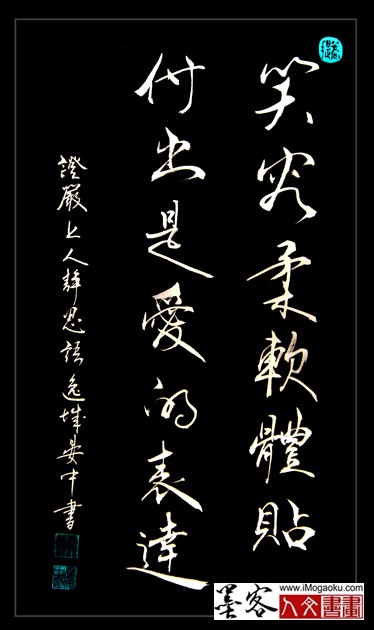 笑容柔軟體貼
付出是愛的表達
證嚴上人靜思語逸城晏中書
墨客
www.iMogaoku.com
人文書畫